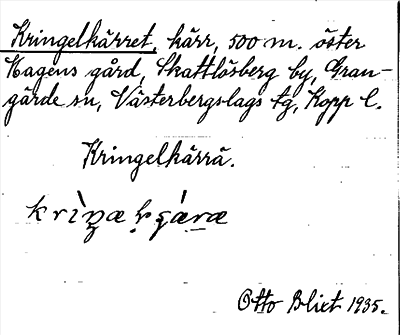 Kringelkärret, kärr, 500 m. öster
Hagens gård, Skattlösberg by, Gran-
gärde sn, Västerbergslags tg, Kopp. l.
Kringelkärrä.
Otto Blixt 1935.